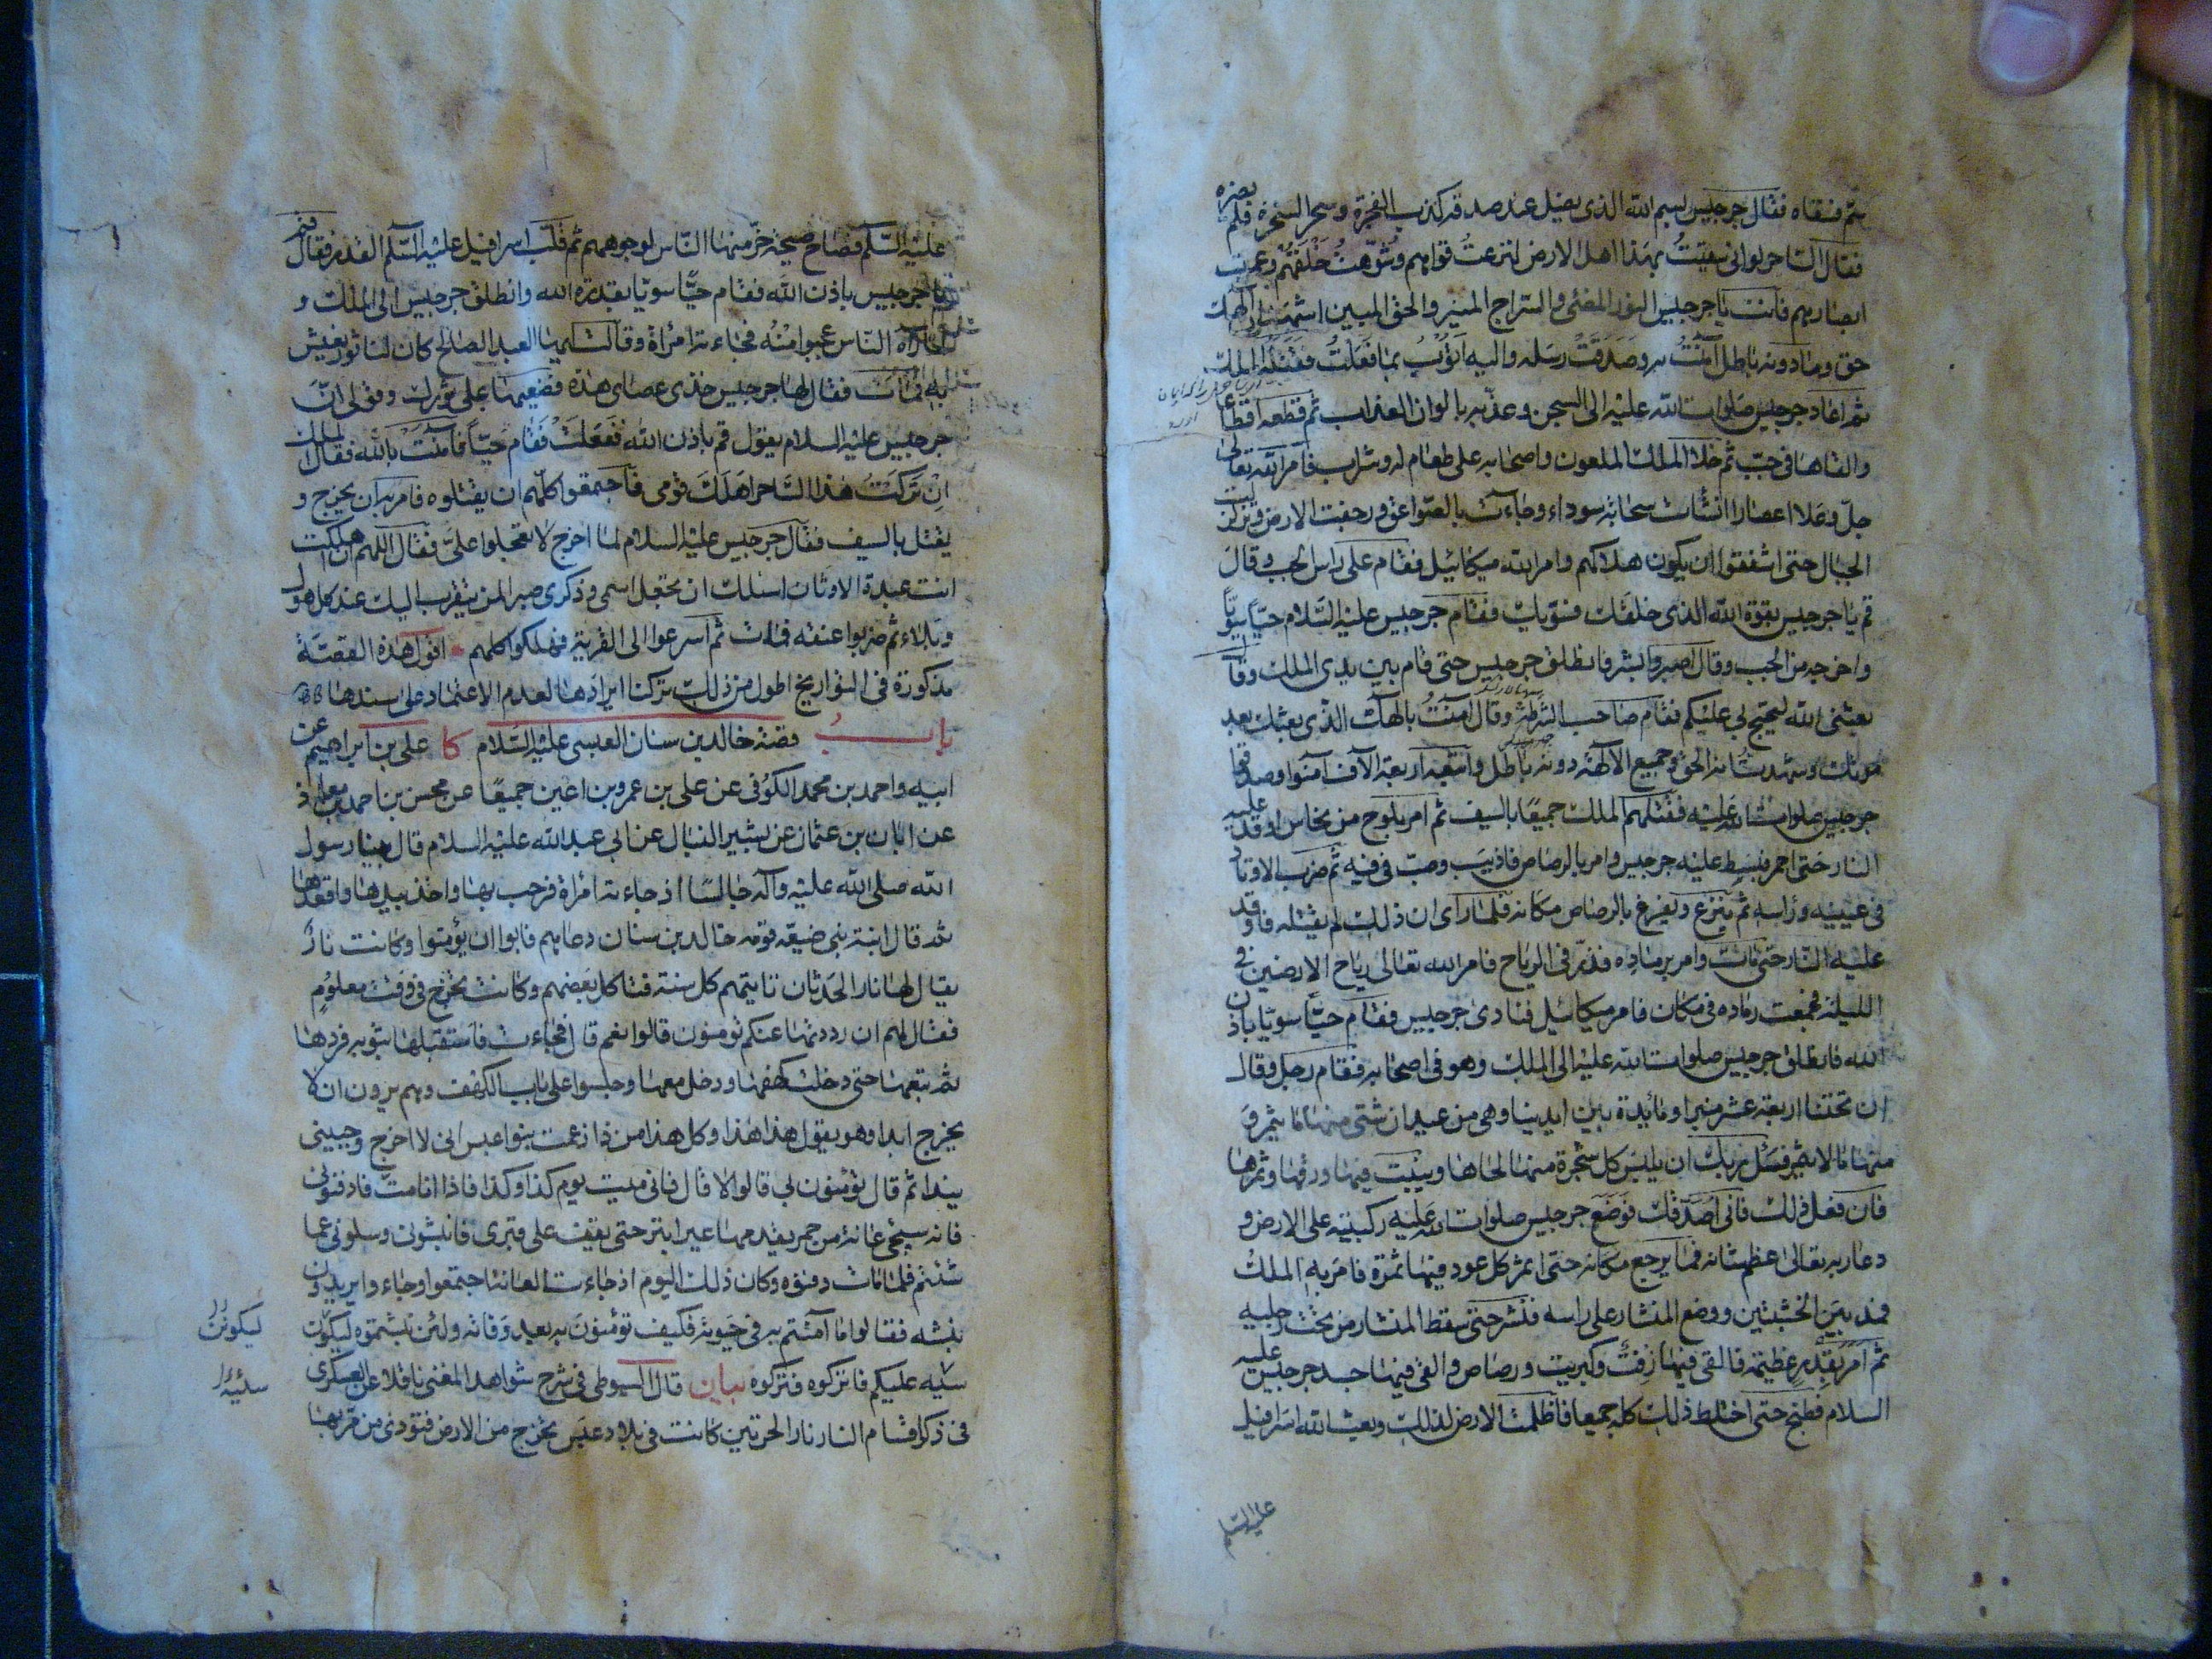 سم فسقاه فقال جرجيس بسم الله الذى يضل عند صدقه كذب الفجرة وسحر السحرة فلم يضره
فقال الساحر لو انى سقيت بهذا اهل الارض لنزعت قواهم وشوهت خلقهم وعميت
ابصارهم فانت يا جرجيس النور المضئ والسراج المنير والحق المبين اشهد ان الهك
حق وما دونه باطل آمنت به وصدقت رسله واليه اتوب بما فعلت فقتله الملك
ثم اعاد جرجيس صلوات الله عليه الى السجن وعذبه بالوان العذاب ثم قطعه اقطاعا
والقاها فى جب ثم خلا الملك الملعون واصحابه على طعام له وشراب فامر الله تعالى
جل وعلا اعصارا انشأت سحابة سوداء وجاءت بالصواعق ورجفت الارض وتزلزلت
الجبال حتى اشفقوا ان يكون هلاكهم وامر الله ميكائيل فقام على راس الجب وقال
قم يا جرجيس بقوة الله الذى خلقك فسويك فقام جرجيس عليه السلام حيا سويا
واخرجه من الجب وقال اصبر وابشر فانطلق جرجيس حتى قام بين يدى الملك وقال
بعثنى الله ليحتج بى عليكم فقام صاحب الشرطة وقال آمنت بالهك الذى بعثك بعد
موتك وشهدت انه الحق وجميع الآلهة دونه باطل واتبعه اربعة الآف آمنوا وصدقوا
جرجيس صلوات الله عليه فقتلهم الملك جميعا بالسيف ثم امر بلوح من نحاس اوقد عليه
النار حتى احمر فبسط عليه جرجيس وامر بالرصاص فاذيب وصب فى فيه ثم ضرب الاوتاد
فى عينيه وراسه ثم ينزع ويفرغ بالرصاص مكانه فلما راى ان ذلك لم يقتله فاوقد
عليه النار حتى مات وامر برماده فذر فى الرياح فامر الله تعالى رياح الارضين فى
الليلة فجمعت رماده فى مكان فامر ميكائيل فنادى جرجيس فقام حيا سويا باذن
الله فانطلق جرجيس صلوات الله عليه الى الملك وهو فى اصحابه فقام رجل وقال
ان تحتنا اربعة عشر منبرا ومائدة بين ايدينا وهى من عيدان شتى منها ما يثمر و
منها ما لا يثمر فسئل ربك ان يلبس كل شجرة منها لحاها وينبت فيها ورقها وثمرها
فان فعل ذلك فانى اصدقك فوضع جرجيس صلوات الله عليه ركبتيه على الارض و
دعا ربه تعالى عظم شانه فما برح مكانه حتى اثمر كل عود فيها ثمرة فامر به الملك
فمد بين الخشبتين ووضع المنشار على راسه فنشر حتى سقط المنشار من تحت رجليه
ثم امر بقدر عظيمة فالقى فيها زفت وكبريت ورصاص والقى فيها جسد جرجيس عليه
السلام فطبخ حتى اختلط ذلك كله جميعا فاظلمت الارض لذلك وبعث الله اسرافيل
عليه السلم
عليه السلم فصاح صيحة خر منها الناس لوجوههم ثم قلب اسرافيل عليه السلم القدر فقال قم
يا جرجيس باذن الله فقام حيا سويا بقدرة الله وانطلق جرجيس الى الملك و
لما رآه الناس عجبوا منه فجاءته امراة وقالت ايها العبد الصالح كان لنا ثور نعيش
به فمات فقال لها جرجيس خذى عصاى هذه فضعيها على ثورك وقولى ان
جرجيس عليه السلام يقول قم باذن الله ففعلت فقام حيا فآمنت بالله فقال الملك
ان تركت هذا الساحر اهلك قومى فاجتمعوا كلهم ان يقتلوه فامر به ان يخرج و
يقتل بالسيف فقال جرجيس عليه السلام لما اخرج لا تعجلوا على فقال اللهم ان اهلكت
انت عبدة الاوثان اسئلك ان تجعل اسمى وذكرى صبرا لمن يتقرب اليك عند كل هول
وبلاء ثم ضربوا عنقه فمات ثم اسرعوا الى القرية فهلكوا كلهم اقول هذه القصة
مذكورة فى التواريخ اطول من ذلك تركنا ايرادها لعدم الاعتماد على سندها
باب قصة خالد بن سنان العبسى عليه السلام كا على بن ابراهيم عن
ابيه واحمد بن محمد الكوفى عن على بن عمرو بن اعين جميعا عن محسن بن احمد بن معاذ
عن ابان بن عثمان عن بشير النبال عن ابى عبد الله عليه السلام قال بينا رسول
الله صلى الله عليه وآله جالسا اذ جاءته امراة فرحب بها واخذ بيدها واقعدها
ثم قال ابنة نبى ضيعه قومه خالد بن سنان دعاهم فابوا ان يؤمنوا وكانت نار
يقال لها نار الحدثان تاتيهم كل سنة فتاكل بعضهم وكانت تخرج فى وقت معلوم
فقال لهم ان رددتها عنكم تؤمنون قالوا نعم قال فجاءت فاستقبلها بثوبه فردها
ثم تبعها حتى دخلت كهفها ودخل معها وجلسوا على باب الكهف وهم يرون ان لا
يخرج ابدا وهو يقول هذا هذا وكل هذا من ذا زعمت بنوا عبس انى لا اخرج وجبينى
يندا ثم قال تؤمنون بى قالوا لا قال فانى ميت يوم كذا وكذا فاذا انا مت فادفنونى
فانه سيجئ عانة من حمر يقدمها عير ابتر حتى يقف على قبرى فانبشونى وسلونى عما
شئتم فلما مات دفنوه وكان ذلك اليوم اذ جاءت العانة اجتمعوا وجاءوا يريدون
نبشه فقالوا ما آمنتم به فى حيوته فكيف تؤمنون به بعد وفاته ولئن نبشتموه ليكون
سبه عليكم فاتركوه فتركوه بيان قال السيوطى فى شرح شواهد المغنى ناقلا عن العسكرى
فى ذكر اقسام النار نار الحرتين كانت فى بلاد عبس تخرج من الارض فتؤذى من مر بها
ليكونن